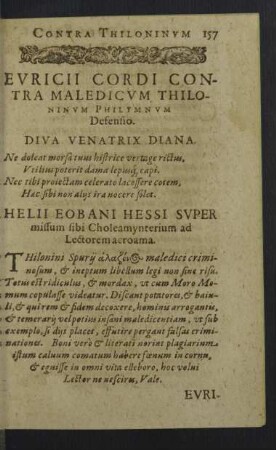 CONTRA THILONINVM 157
EVRICII CORDI CON-
TRA MALEDICVM THILO-
NINVM PHILYMNVM
Defensio.
DIVA VENATRIX DIANA.
Ne doleat morsâ tuus histrice vertage rictus,
Vtilius poterit dama lepusq́; capi.
Nec tibi proiectam celerato lacessere cotem,
Hac sibi non alijs ira nocere solet.
HELII EOBANI HESSI SVPER
missum sibi Choleamynterium ad
Lectorem acroama.
THilonini Spurij maledicè crimi-
nosum, & ineptum libellum legi non sine risu.
Totus est ridiculus, & mordax, vt cum Moro Mo-
mum copulasse videatur. Discant potatores, & baiu-
li, & quirem & fidem decoxere, hominis arrogantis,
& temerarij vel potius insani maledicentiam, vt sub
exemplo, si dijs placet, effutire pergant falsas crimi-
nationes. Boni verò & literati norint plagiarium
istum caluum comatum habere fœnum in cornu,
& egnisse in omni vita elleboro, hoc volui
Lector ne nescires, Vale.
EVRI-